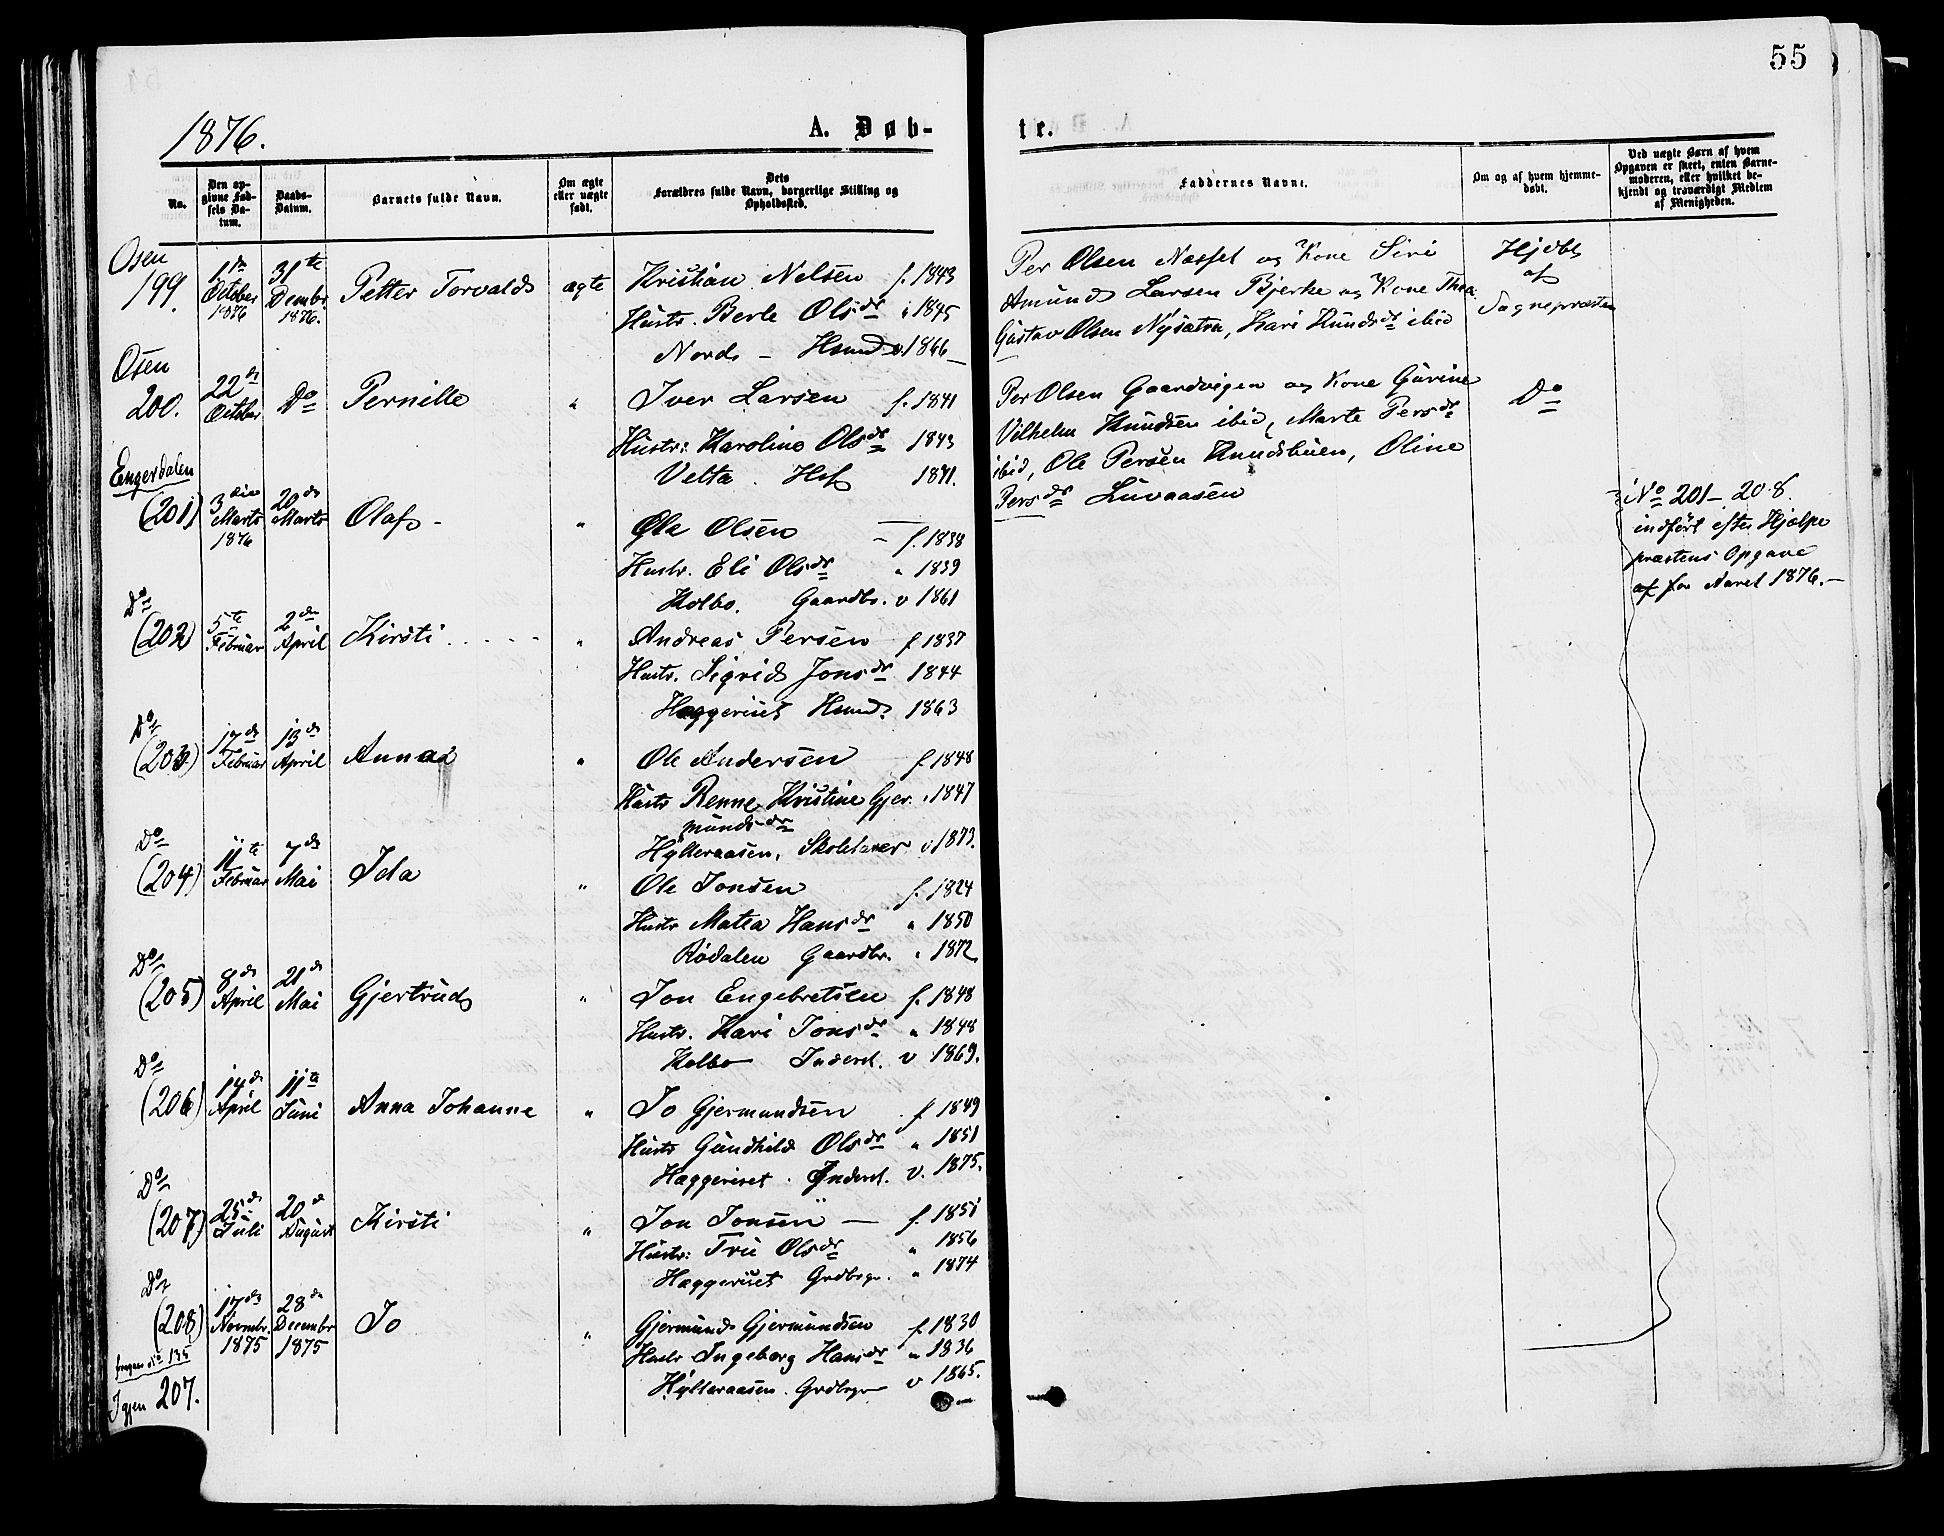 55
1876.
A. Døb-
te.
No.
Den op-
givne Fød-
sels Da-
tum.
Daabs-
Datum.
Barnets fulde Navn.
Om ægte
eller uægte
født.
Dets
Forældres fulde Navn, borgerlige Stilling og
Opholdssted.
Faddernes Navne.
Om og af hvem hjemme-
døbt.
Ved uægte Børn af hvem
Opgaven er skeet, enten Barne-
moderen, eller hvilket be-
kjendt og troværdigt Medlem
af Menigheden.
Osen
199.
1ste
October
1876
31te
Dembr
1876.
Petter Torvald
ægte
Kristian Nelsen f. 1843
Hustr. Berle Olsdr 1845
Nord - Hsmd v. 1866
Per Olsen Næsset og Kone Siri
Amund Larsen Bjerke og Kone Thea
Gustav Olsen Nysætra, Kari Knudsdr ibid
Hjdbt
af
Sognepræsten
Osen
200.
22de
October
Do
Pernille
"
Iver Larsen f. 1841
Hustr: Karoline Olsdr 1843
Velta. Hsf 1871.
Per Olsen Gaardvigen og Kone Gurine
Vilhelm Knudsen ibid, Marte Persdr
ibid, Ole Persen Knudsbuen, Oline
Persdr Luvaasen
Do
Engerdalen
(201)
3die
Marts
1876
20de
Marts
Olaf -
"
Ole Olsen f. 1838
Hustr. Eli Olsdr " 1839
Kolbo. Gaardbr. v 1861
No 201 - 208.
indført efter Hjælpe
præstens Opgave
af for Aaret 1876.-
Do
(202)
5te
Februar
2den
April
Kirsti
"
Andreas Persen f 1837
Hustr. Sigrid Jonsdr 1844
Hæggeriset Hsmd. 1863
Do
(203)
17de
Februar
13de
April
Anna
"
Ole Andersen f 1848
Hustr Renne Kristine Gjer. " 1847
mundsdr
Hylleraasen, Skolelærer v 1873.
Do
(204)
11te
Februar
7de
Mai
Ida
"
Ole Jonsen f. 1824
Hustr Matea Hansdr " 1850
Rødalen Gaardbr. " 1872
Do
(205)
8de
April
21de
Mai
Gjertrud
"
Jon Engebretsen f. 1848
Hustr. Kari Jonsdr " 1848
Kolbo Inderst. v 1869.
Do
(206)
14de
April
11te
Juni
Anna Johanne
"
Jo Gjermundsen f 1849
Hustr Gundhild Olsdr " 1851
Hæggeriset. Inderst. v. 1875.
Do
(207)
25de
Juli
20de
August
Kirsti
"
Jon Jonsen - f. 1851
Hustr: Tru Olsdr " 1856
Hæggeriset Grdbrgr. " 1874
Do
(208)
17de
Novmbr.
1875
28de
Decembr
1875
Jo
"
Gjermund Gjermundsen f. 1830
Hustr Ingeborg Hansdr " 1836
Hylleraasen. Grdbrgr v 1865.
No 135
Igjen 207.